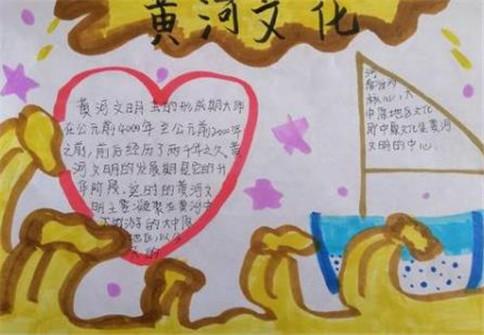 黄河文化
黄河文明的形成期大体
在公元前4000年至公元前2000年
之前,前后经历了两千年之久,黄
河文明的发展期是它的升
华阶段,这时的黄河文
明主要凝聚在黄河中
下游的大中原
地区,以今
河
南省为
核心,大
中原地区文化
即中原文化是黄河
文明的中心.